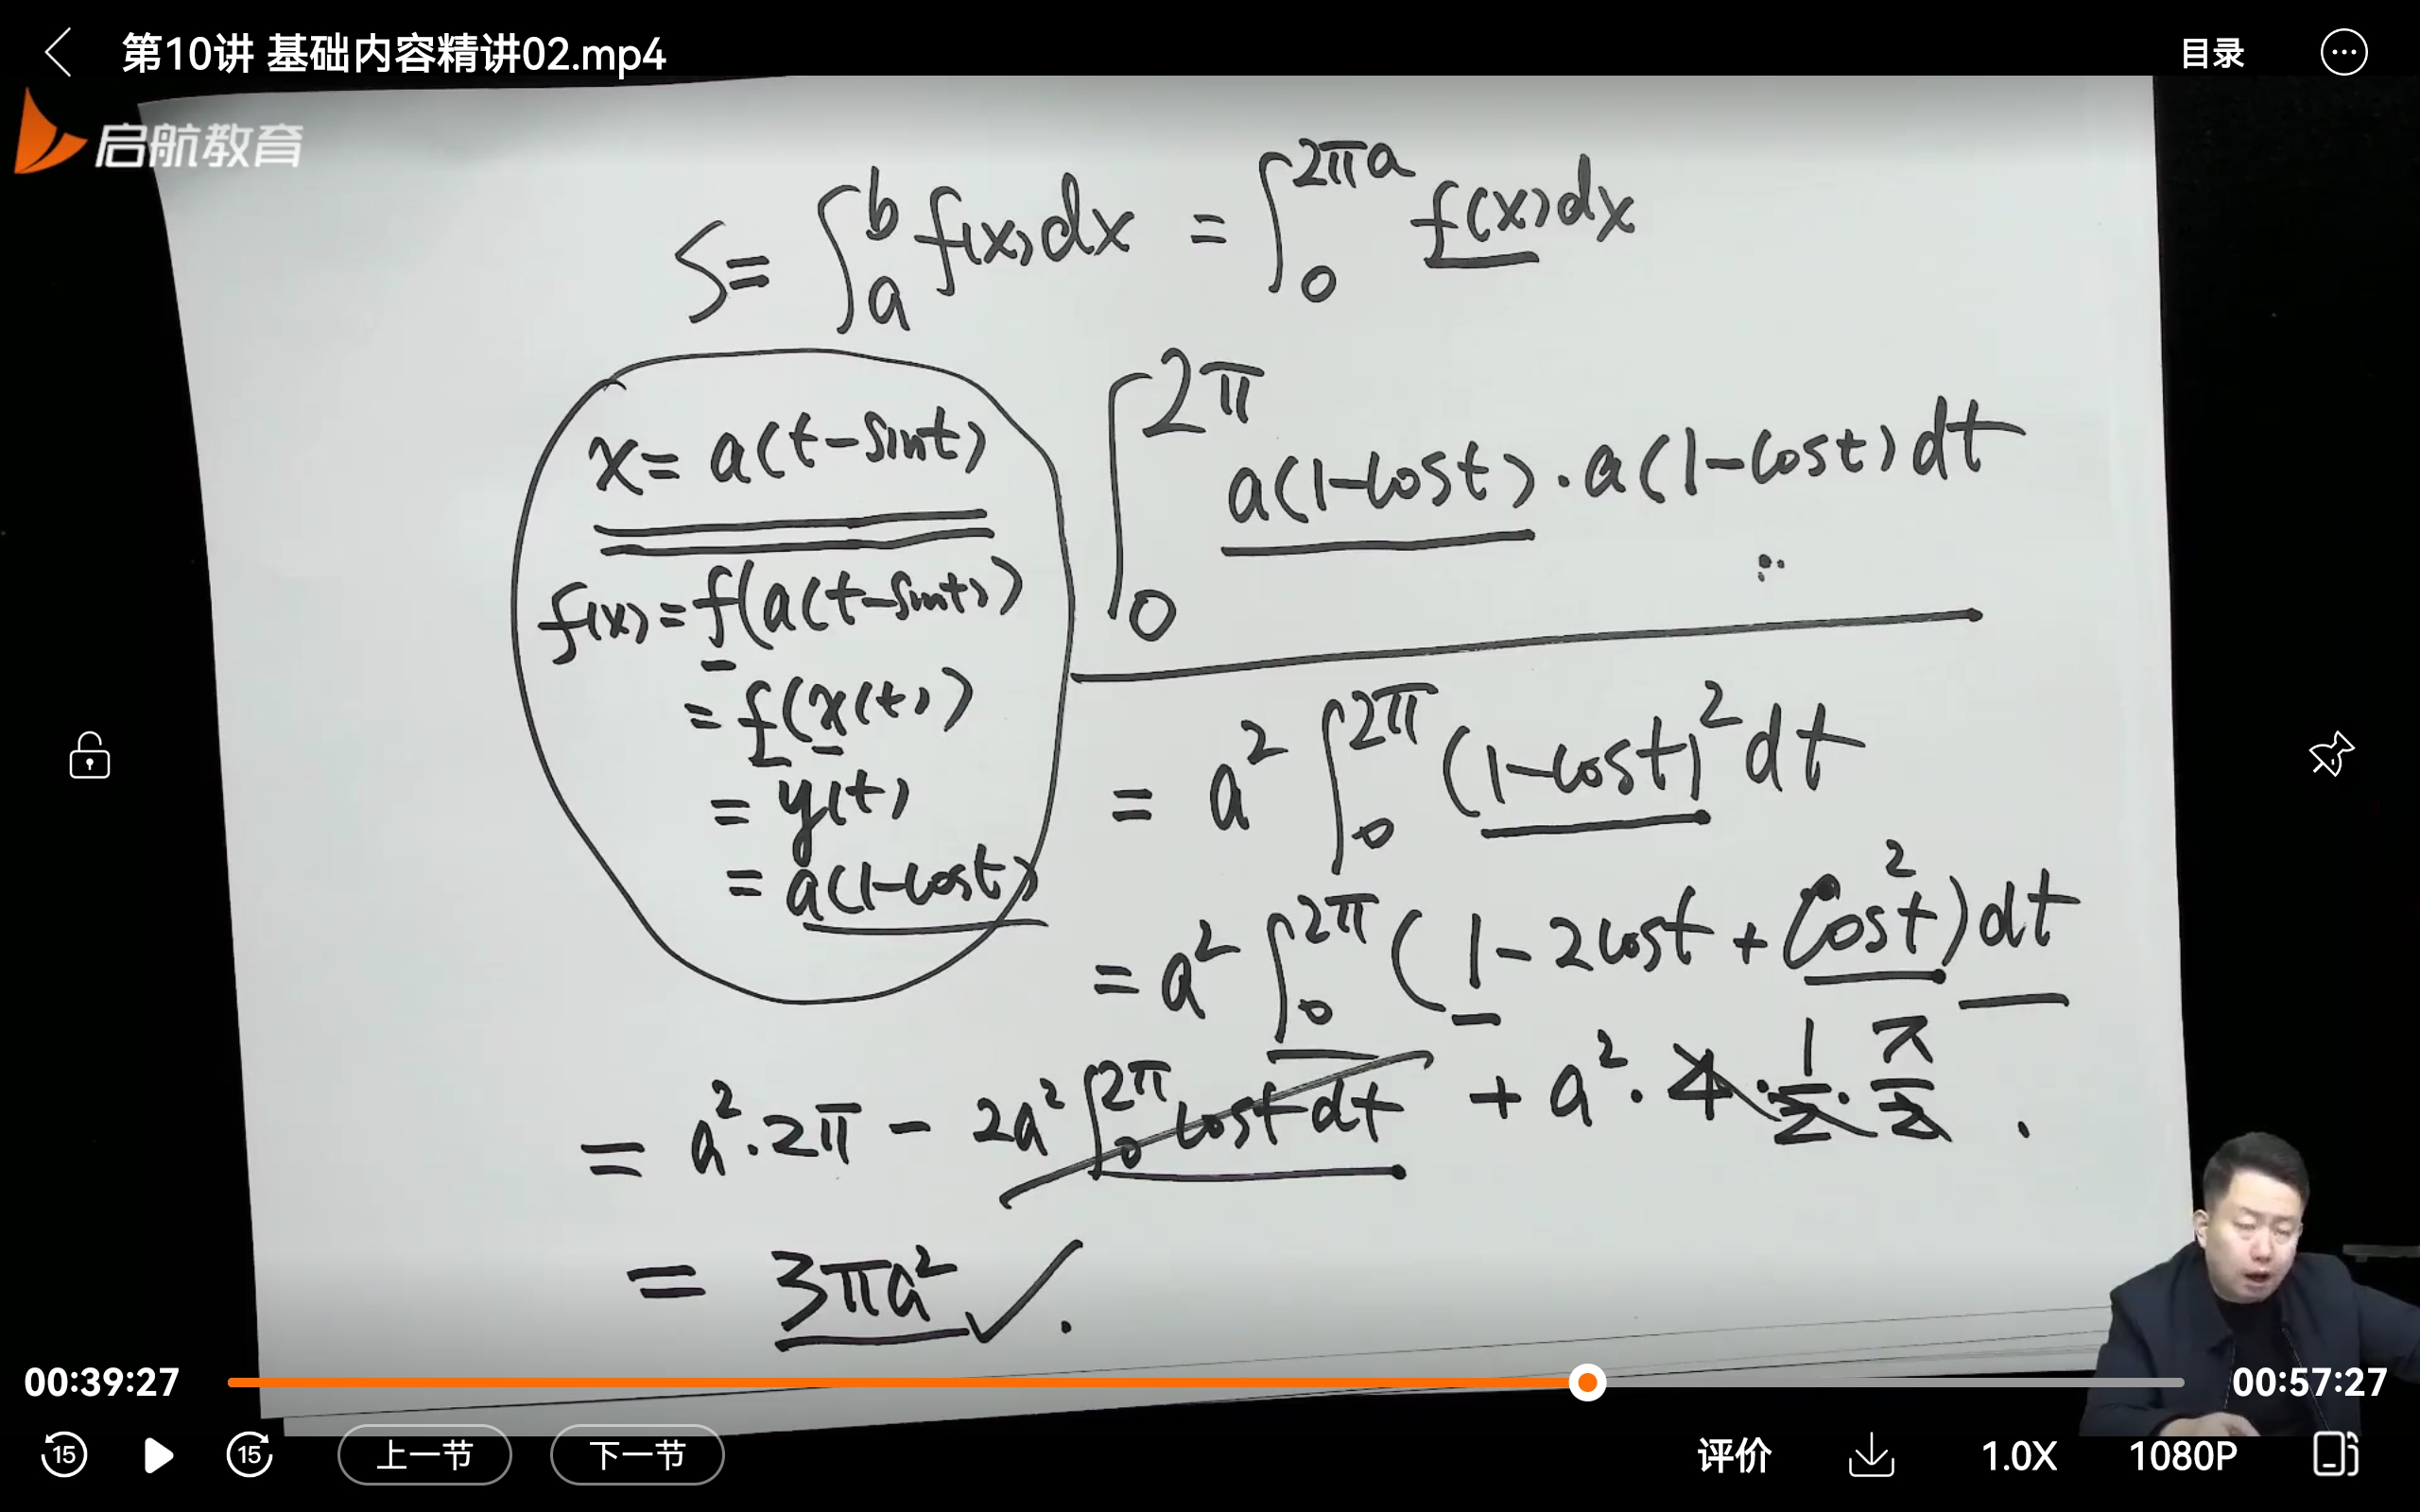 第10讲 基础内容精讲02.mp4
目录
启航教育
S= ∫_a^b f(x)dx = ∫_0^{2πa} f(x)dx
x= a(t-sint)
∫_0^{2π} a(1-cost)·a(1-cost)dt
f(x)=f(a(t-sint))
=f(x(t))
=y(t)
=a(1-cost)
= a² ∫_0^{2π} (1-cost)² dt
= a² ∫_0^{2π} (1-2cost+cos²t)dt
= a²·2π - 2a² ∫_0^{2π} cost dt + a²·4·1/2·π/2.
= 3πa² ✓.
00:39:27
00:57:27
15
15
上一节
下一节
评价
1.0X
1080P